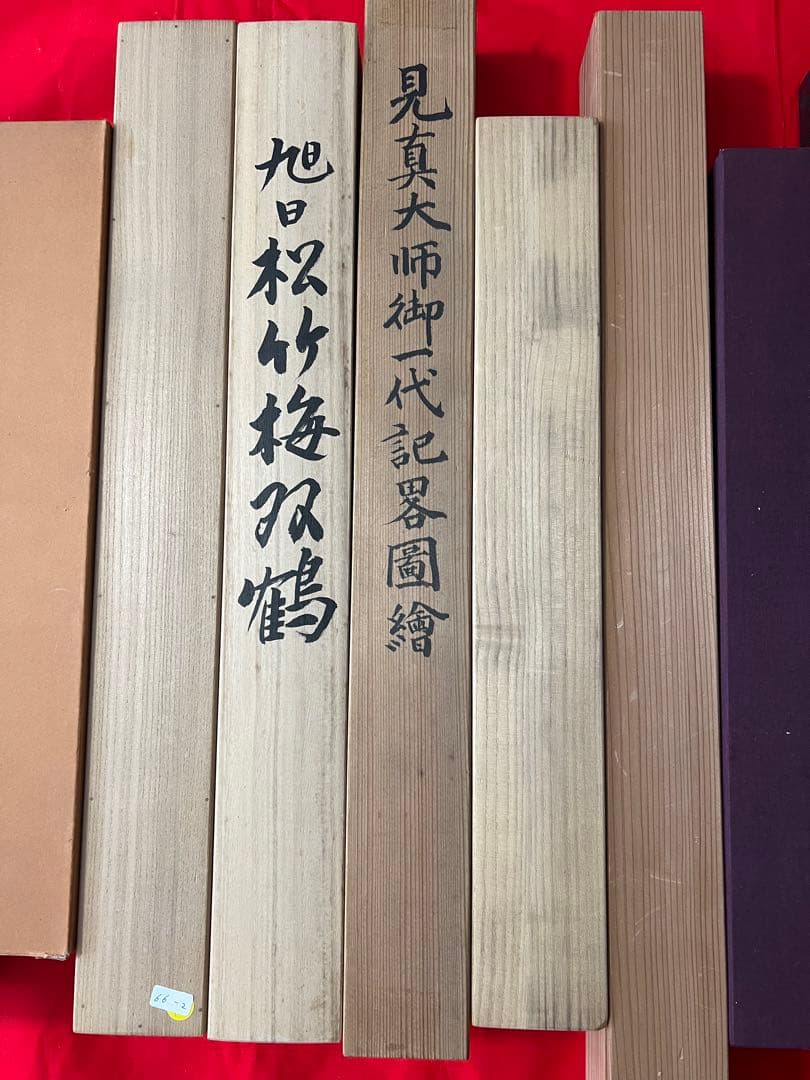 見真大师御一代記畧圖繪
旭日松竹梅双鶴
66-2